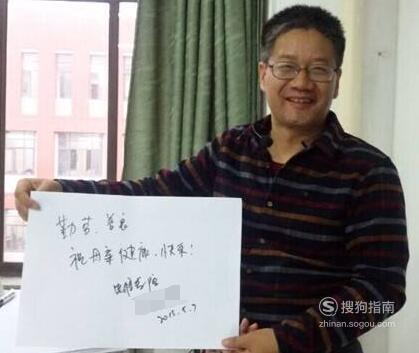 勤劳、善良
祝母亲健康、快乐！
2015.5.7
搜狗指南
zhinan.sogou.com